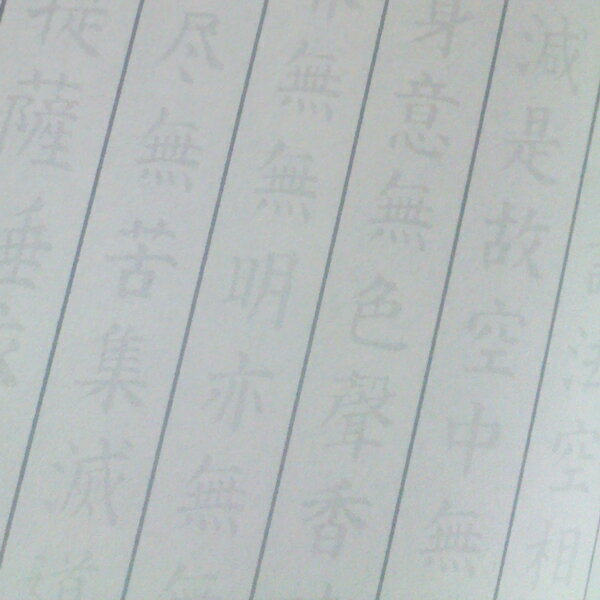 法空相
減是故空中無
身意無色聲香
無無明亦無無
尽無苦集滅道
提薩埵